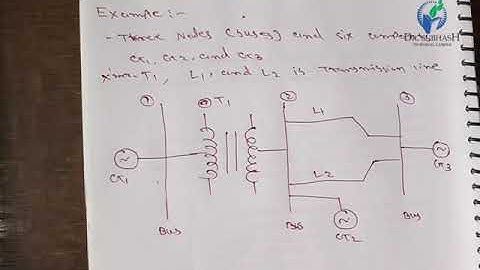 Example :-
- Three Nodes (buses) and six
G1, G2, and G3
T1, L1, and L2 is Transmission line
1
T1
2
3
L1
L2
G1
G2
G3
Bus
Bus
Bus